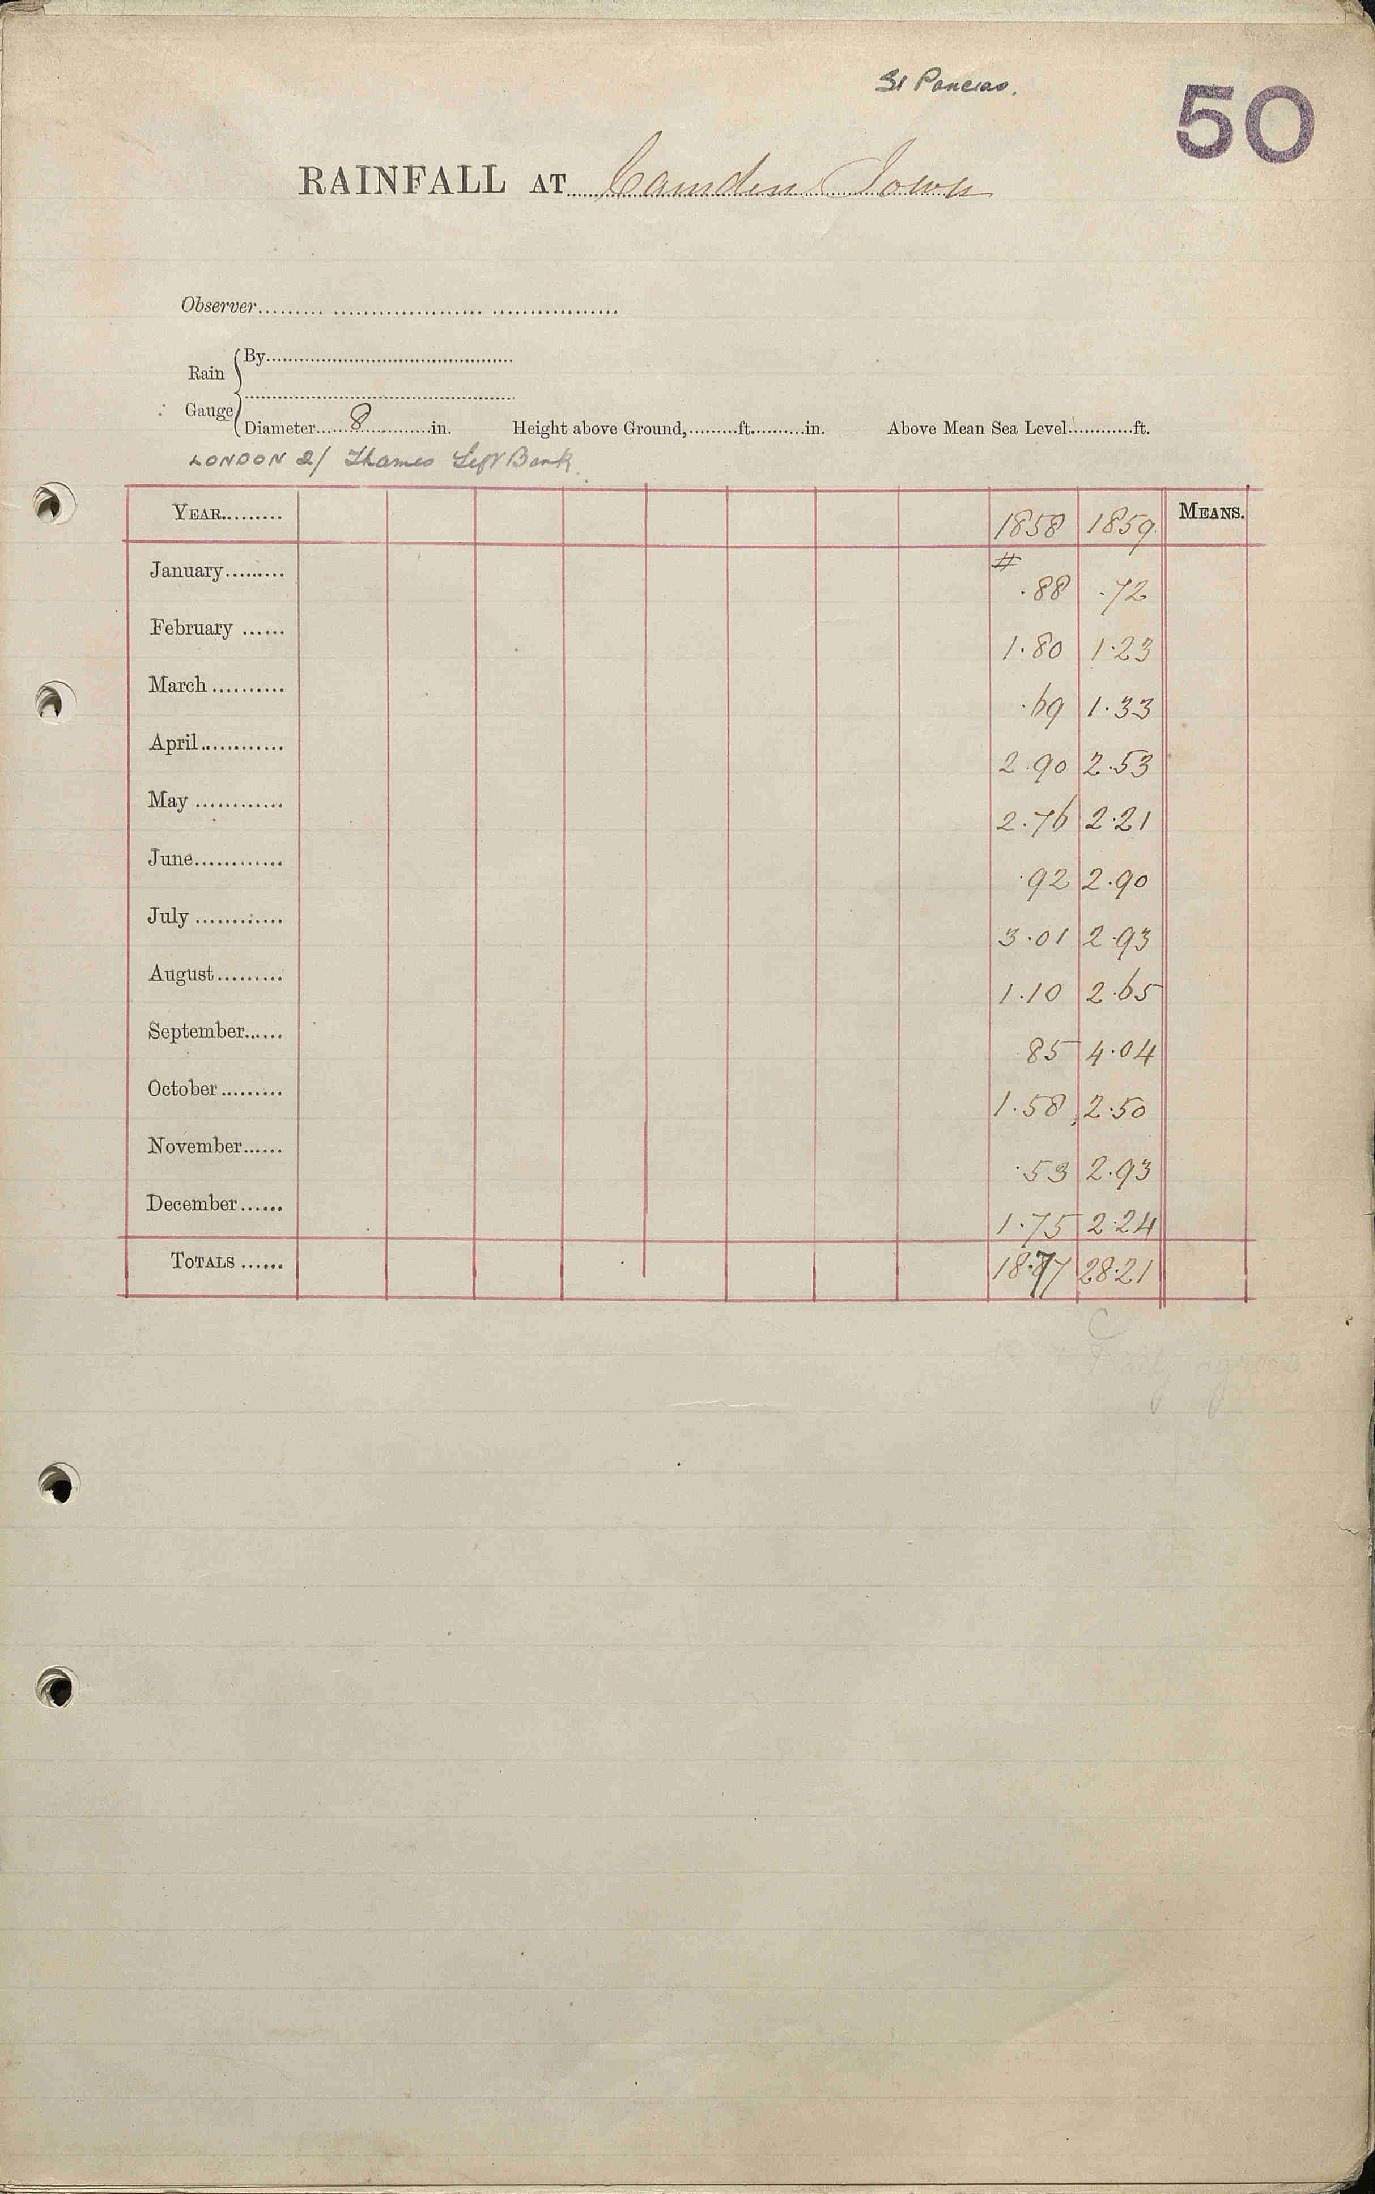 St Pancras.
50
RAINFALL AT Camden Town
Observer
Rain Gauge
By
Diameter 8 in. Height above Ground, ft. in. Above Mean Sea Level ft.
LONDON 2/ Thames Left Bank
YEAR 1858 1859 MEANS.
#
January .88 .72
February 1.80 1.23
March .69 1.33
April 2.90 2.53
May 2.76 2.21
June .92 2.90
July 3.01 2.93
August 1.10 2.65
September 85 4.04
October 1.58 2.50
November .53 2.93
December 1.75 2.24
TOTALS 18.77 28.21
C
Daily